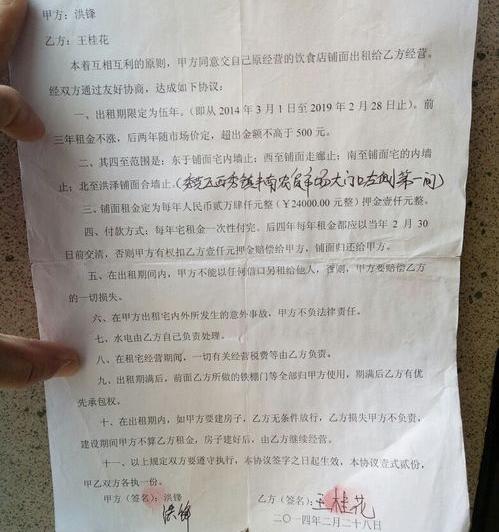 甲方：洪锋
乙方：王桂花
本着互相互利的原则，甲方同意交自己原经营的饮食店铺面出租给乙方经营。
经双方通过友好协商，达成如下协议：
一、出租期限定为伍年。（即从 2014 年 3 月 1 日至 2019 年 2 月 28 日止）。前
三年租金不涨，后两年随市场价定，超出金额不高于 500 元。
二、其四至范围是：东于铺面宅内墙止；西至铺面走廊止；南至铺宅的内墙
止；北至洪泽铺面合墙止.（秀英区西秀镇丰南农贸市场大门口左侧第一间）
三、铺面租金定为每年人民币贰万肆仟元整（￥24000.00 元整）押金壹仟元整。
四、付款方式：每年宅租金一次性付完。后四年每年租金都应以当年 2 月 30
日前交清，否则甲方有权扣乙方壹仟元押金赔偿给甲方，铺面归还给甲方。
五、在出租期间内，甲方不能以任何借口另租给他人，否则，甲方要赔偿乙方
的一切损失。
六、在甲方出租宅内外所发生的意外事故，甲方不负法律责任。
七、水电由乙方自己负责处理。
八、在租宅经营期间，一切有关经营税费等由乙方负责。
九、出租期满后，前面乙方所做的铁棚门等全部归甲方使用，期满后乙方有优
先承包权。
十、在出租期内，如甲方要建房子，乙方无条件放行，乙方损失甲方不负责，
建设期间甲方不算乙方租金，房子建好后，由乙方继续经营。
十一、以上规定双方要遵守执行，本协议签字之日起生效，本协议壹式贰份，
甲乙双方各执一份。
甲方（签名）：洪锋 乙方（签名）：王桂花
洪锋 二〇一四年二月二十八日